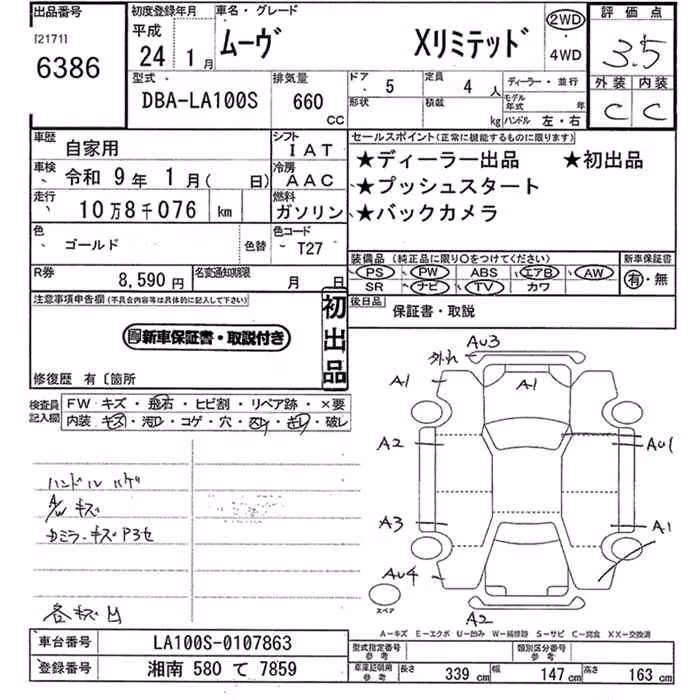 出品番号
[2171]
6386
初度登録年月
平成
24 1月
車名・グレード
ムーヴ Xリミテッド
2WD
4WD
評価点
3.5
外装 内装
C C
型式
DBA-LA100S
排気量
660
CC
ドア 5
形状
定員 4 人
積載 kg
ディーラー・並行
モデル年式 年
ハンドル 左・右
車歴
自家用
シフト
IAT
車検
令和 9年 1月( 日)
冷房
AAC
走行
10万8千076 km
燃料
ガソリン
色
ゴールド
色替
色コード
T27
R券
8,590円
名変通知期限
月 日
セールスポイント(正常に機能するものに限ります)
★ディーラー出品 ★初出品
★プッシュスタート
★バックカメラ
装備品 (純正品に限り○をつけてください)
PS PW ABS エアB AW
SR ナビ TV カワ
新車保証書
有・無
後日品
保証書・取説
注意事項申告欄(不具合内容等は具体的に記入して下さい)
新車保証書・取説付き
初出品
修復歴 有〔箇所
検査員記入欄
FW キズ・飛石・ヒビ割・リペア跡・×要
内装・キズ・汚レ・コゲ・穴・スレ・キレ・破レ
ハンドルハゲ
A/W キズ
カミラーキズP3セ
各キズ凹
外れ
AU3
A1
A1
A2
AU1
A3
A1
AU4
A2
スペア
A-キズ E-エクボ U-凹み W-補修跡 S-サビ C-腐食 XX-交換済
車台番号
LA100S-0107863
登録番号
湘南 580 て 7859
型式指定番号
参考
類別区分番号
参考
車庫証明用
参考
長さ 339 cm 幅 147 cm 高さ 163 cm